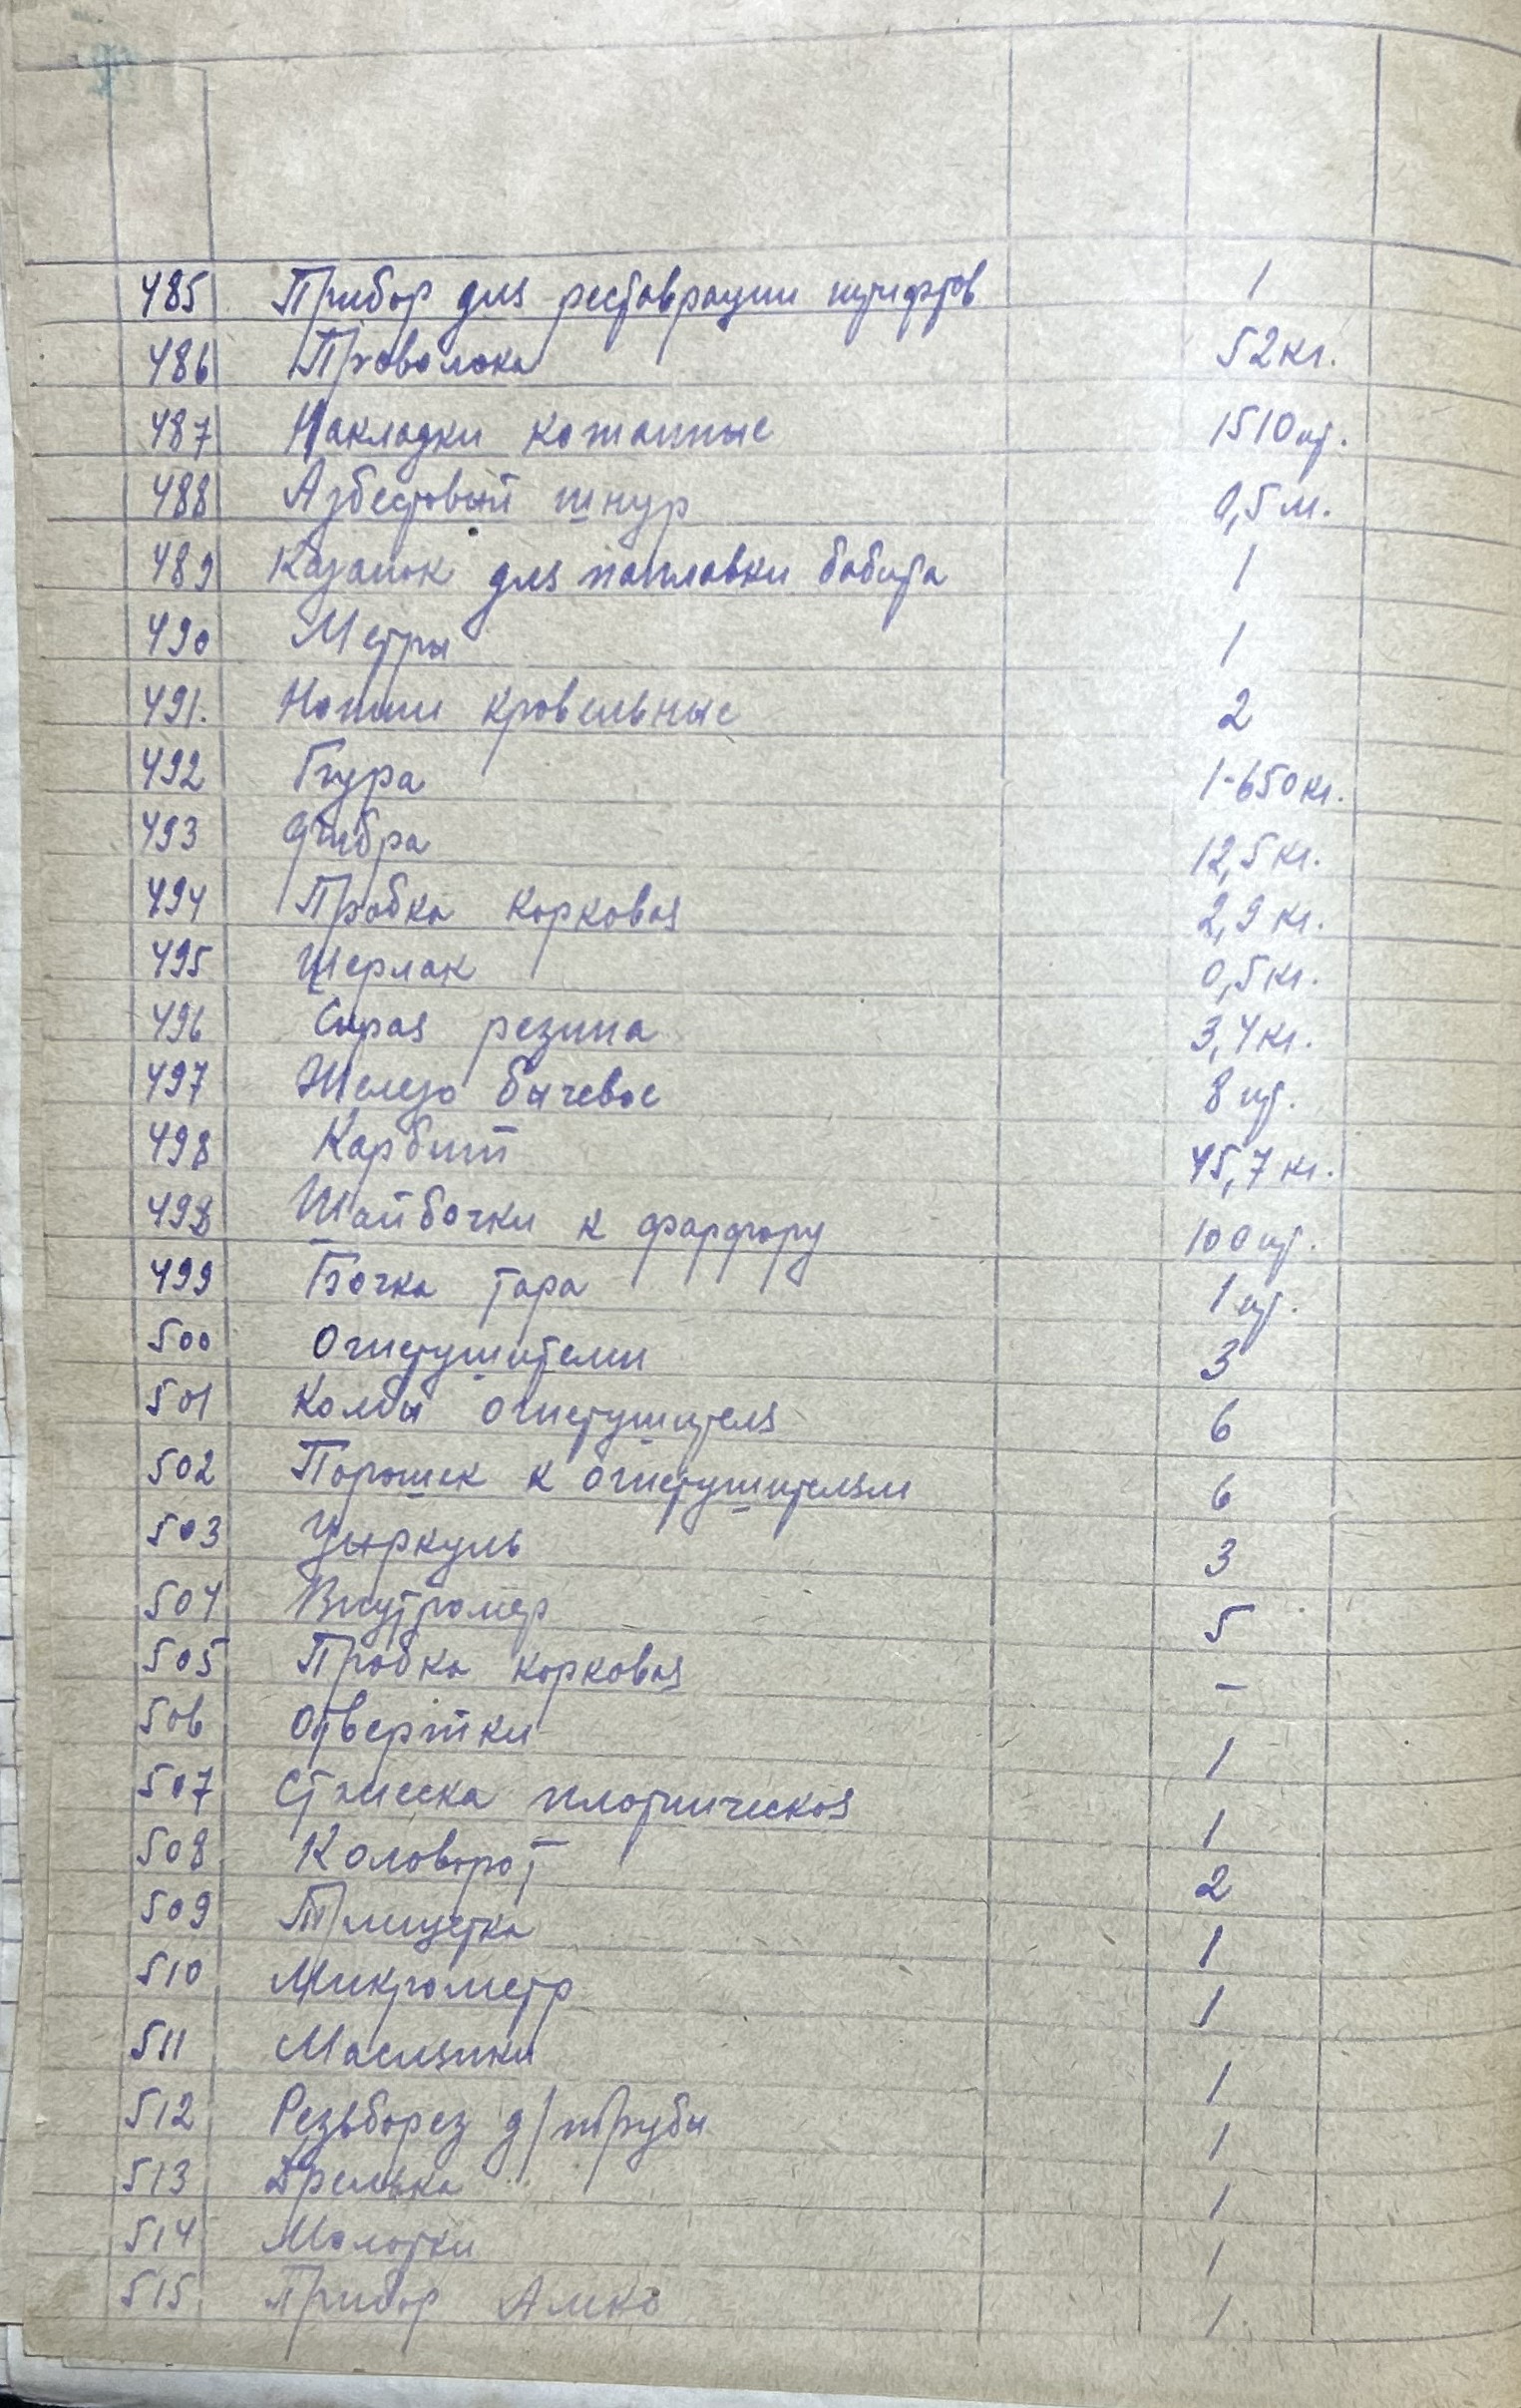 485 Прибор для реставрации шрифтов 1
486 Проволока 52кг.
487 Накладки кожанные 1510шт.
488 Азбестовый шнур 0,5 м.
489 Казанок для поплавки бабита 1
490 Метры 1
491. Ножни кровельные 2
492 Гиря 1-650кг.
493 Фибра 12,5кг.
494 Пробка корковая 2,9 кг.
495 Шерлак 0,5кг.
496 Сырая резина 3,4кг.
497 Железо бычевое 8 шт.
498 Карбит 45,7 кг.
498 Шайбочки к фарфору 100шт.
499 Бочка тара 1 шт.
500 Огнетушители 3
501 Колбы огнетушителя 6
502 Порошек к огнетушителям 6
503 Цыркуль 3
504 Внутромер 5
505 Пробка корковая –
506 Отвертки 1
507 Стамеска плотническая 1
508 Коловорот 2
509 1
510 Микрометр 1
511 Маслянки 1
512 Резьборез д/трубы 1
513 Дрелька 1
514 Молотки 1
515 Прибор 1